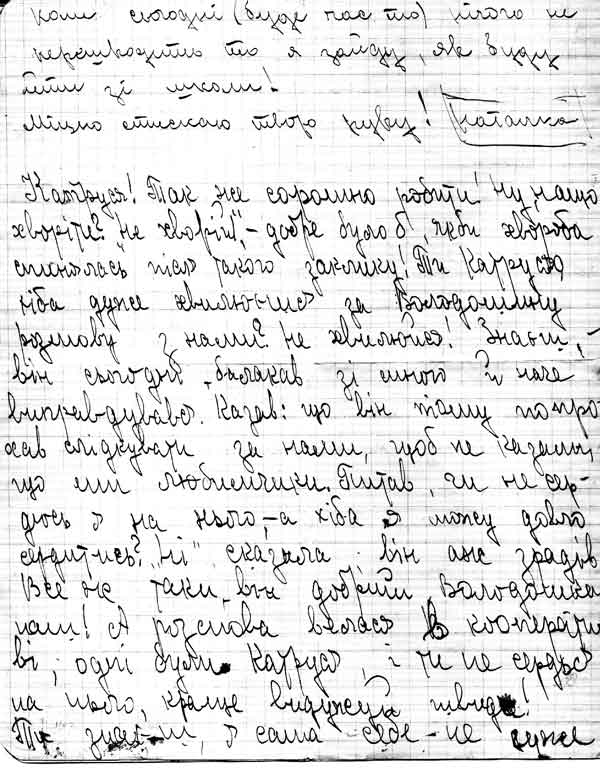 коли сьогодні (буде час то) нічого не
перешкодить то я зайду, як буду
йти зі школи!
Міцно стискаю твою руку! Наталка
Катруся! Так же соромно робити! Ну, нащо
хворіти? "Не хворій", – добре було б, якби хвороба
спинялась після такого заклику! Ти Катруся
ніба дуже хвилюєшся за Володьчину
розмову з нами? Не хвилюйся! Знаєш, –
він сьогодні балакав зі мною й наче
виправдувався. Казав: що він тому попро
хав слідкувати за нами, щоб не казали,
що ми любимчики. Питав, чи не сер-
джусь я на нього, – а хіба я можу довго
сердитись? "Ні" сказала він аж зрадів
Все ж таки, він добрий Володимка
наш! А розмова велася в кооперати
ві, одні були Катруся, і ти не сердься
на нього, краще видужуй швидче!
Ти знаєш, я сама себе не дуже